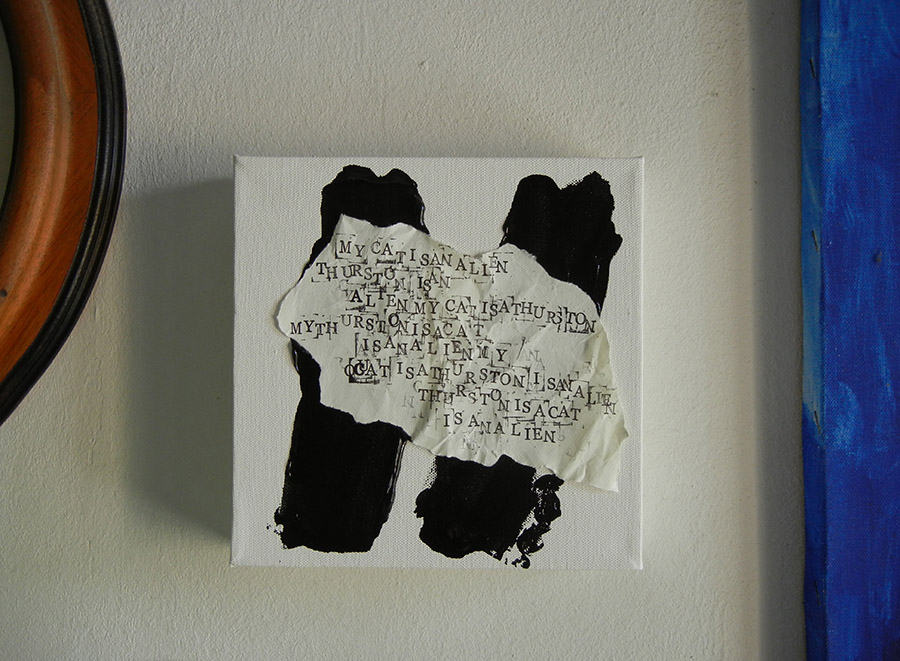 MY CAT IS AN ALIEN
THURSTON IS AN
ALIEN MY CAT IS A THURSTON
MY THURSTON IS A CAT
IS AN ALIEN MY
CAT IS A THURSTON IS AN ALIEN
THURSTON IS A CAT
IS AN ALIEN